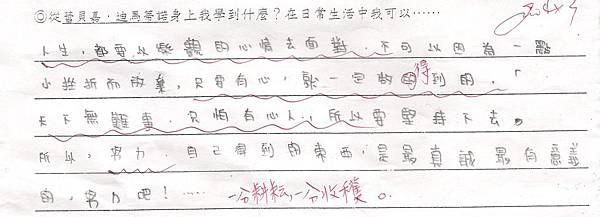 ◎從蕾貝嘉．迪馬蒂諾身上我學到什麼？在日常生活中我可以……
人生，都要以樂觀的心情去面對，不可以因為一點
小挫折而放棄，只要有心，就一定做得到的，「
天下無難事，只怕有心人」，所以要堅持下去。
所以，努力，自己得到的東西，是最真誠最有意義
的，努力吧！……一分耕耘，一分收穫。